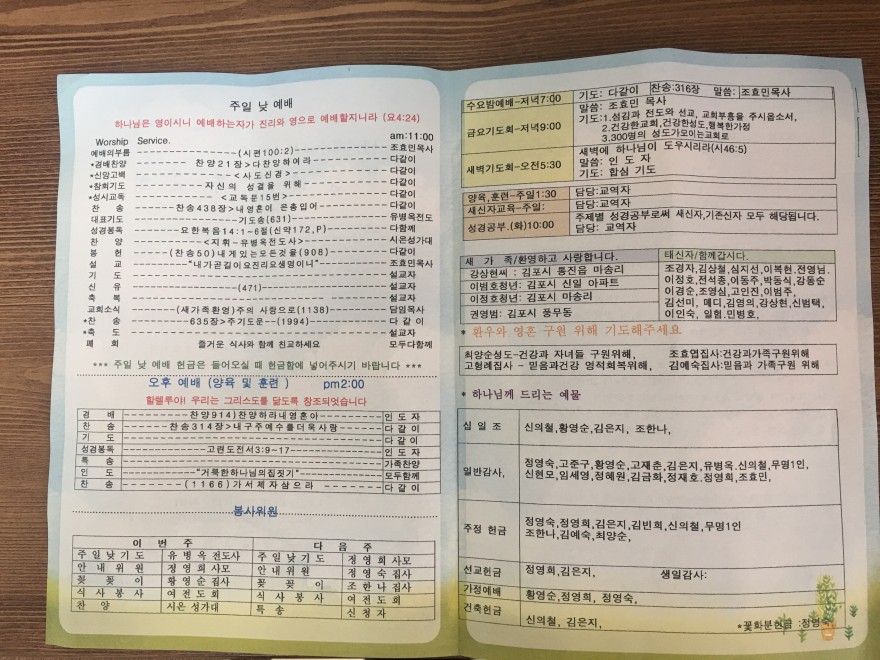 주일 낮 예배
하나님은 영이시니 예배하는자가 진리와 영으로 예배할지니라 (요4:24)
Worship Service. am:11:00
예배의부름 (시편100:2) 조효민목사
*경배찬양 찬양21장>다찬양하여라 다같이
*신앙고백 <사도신경> 다같이
*참회기도 자신의 성결을 위해 다같이
*성시교독 <교독문15번> 다같이
찬 송 찬송438장>내영혼이 은총입어 다같이
대표기도 기도송(631) 유병옥전도
성경봉독 요한복음14:1~6절(신약172,P) 다함께
찬 양 <지휘-유병옥전도사> 시온성가대
봉 헌 (찬송50)내게있는모든것을(908) 다같이
설 교 "내가곧길이요진리요생명이니" 조효민목사
기 도 설교자
신 유 (471) 설교자
축 복 설교자
교회소식 (새가족환영)주의 사랑으로(1138) 담임목사
*찬 송 635장>주기도문--(1994) 다 같 이
*축 도 설교자
폐 회 즐거운 식사와 함께 친교하세요 모두다함께
*** 주일 낮 예배 헌금은 들어오실 때 헌금함에 넣어주시기 바랍니다 ***
오후 예배 (양육 및 훈련 ) pm2:00
할렐루야! 우리는 그리스도를 닮도록 창조되엇습니다
경 배 찬양914)찬양하라내영혼아 인 도 자
찬 송 찬송314장>내구주예수를더욱사랑 다 같 이
기 도 다 같 이
성경봉독 고린도전서3:9~17 인 도 자
특 송 가족찬양
인 도 "거룩한하나님의집짓기" 모두함께
찬 송 (1166)가서제자삼으라 다 같 이
봉사위원
이 번 주 다 음 주
주일낮기도 유병옥전도사 주일낮기도 정영희사모
안내위원 정영희사모 안내위원 정영숙집사
꽃 꽂 이 황영순집사 꽃 꽂 이 조한나집사
식사봉사 여전도회 식사봉사 여전도회
찬 양 시온성가대 특 송 신청자
수요밤예배-저녁7:00 기도: 다같이 찬송:316장 말씀: 조효민목사
금요기도회-저녁9:00 말씀: 조효민 목사
기도:1.섬김과 전도와 선교, 교회부흥을 주시옵소서,
2.건강한교회,건강한성도,행복한가정
3.300명의 성도가모이는교회로
새벽기도회-오전5:30 새벽에 하나님이 도우시리라(시46:5)
말씀: 인 도 자
기도: 합심 기도
양육,훈련-주일1:30 담당:교역자
새신자교육-주일: 담당:교역자
성경공부.(화)10:00 주제별 성경공부로써 새신자,기존신자 모두 해당됩니다.
담당: 교역자
새 가 족/환영하고 사랑합니다. 태신자/함께갑시다.
강상현씨 : 김포시 통진읍 마송리
이범호청년: 김포시 신일 아파트
이정호청년: 김포시 마송리
권영범: 김포시 풍무동
조경자,김상철,심지선,이복현,전영님.
이정호,전석종,이동주,박동식,감동순
이경순,조영심,고인진,이범주,
김선미, 메디,김영의,강상현,신범택,
이인숙, 일험,민병호,
* 환우와 영혼 구원 위해 기도해주세요
최양순성도-건강과 자녀들 구원위해, 조효엽집사:건강과가족구원위해
고형례집사 - 믿음과건강 영적회복위해, 김예숙집사:믿음과 가족구원 위해
* 하나님께 드리는 예물
십 일 조 신의철,황영순,김은지, 조한나,
일반감사, 정영숙,고준구,황영순,고재춘,김은지,유병옥.신의철,무명1인,
신현모,임세영,정혜원,김금화,정재호.정영희,조효민,
주정 헌금 정영숙,정영희,김은지,김빈희,신의철,무명1인
조한나,김예숙,최양순,
선교헌금 정영희,김은지, 생일감사:
가정예배 황영순,정영희, 정영숙,
건축헌금 신의철, 김은지, *꽃화분헌금 :정영숙